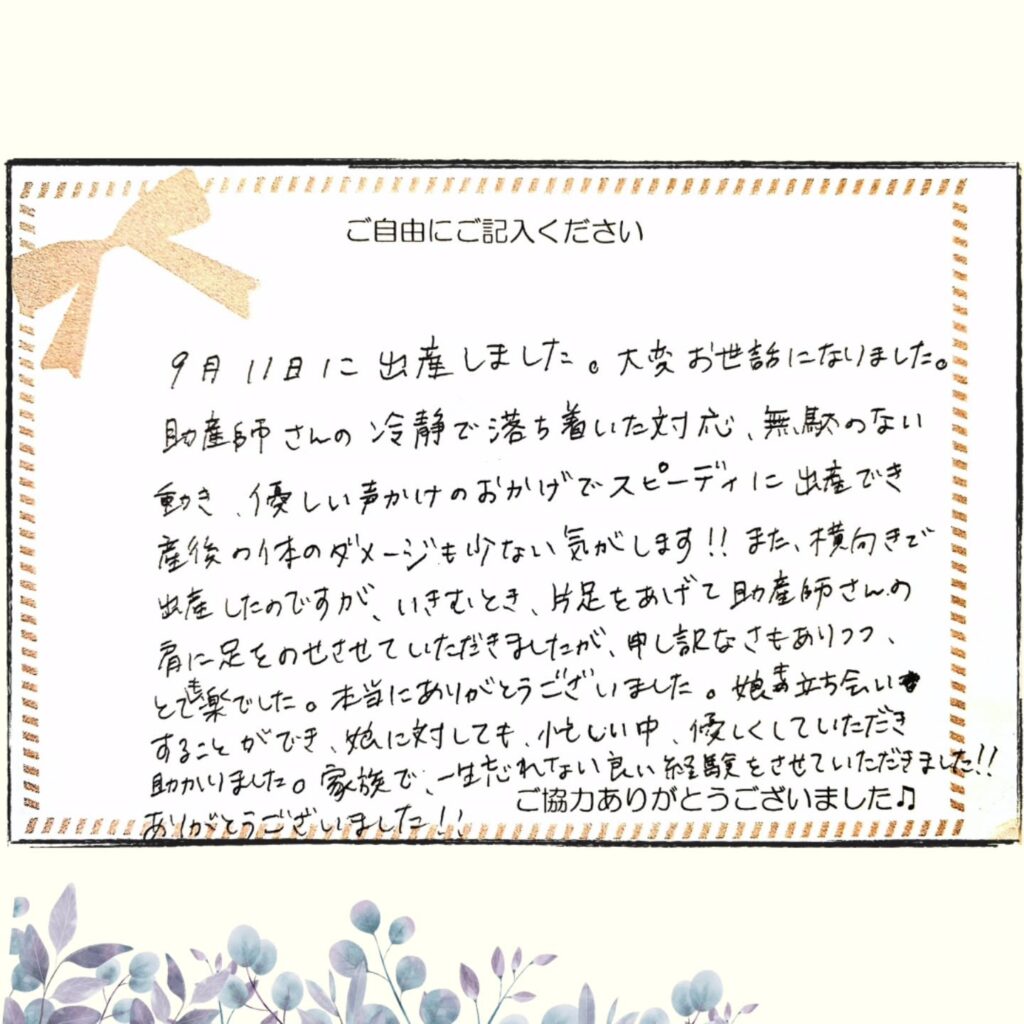 ご自由にご記入ください
9月11日に出産しました。大変お世話になりました。
助産師さんの冷静で落ち着いた対応、無駄のない
動き、優しい声かけのおかげでスピーディに出産でき
産後の体のダメージも少ない気がします!!また、横向きで
出産したのですが、いきむとき、片足をあげて助産師さんの
肩に足をのせさせていただきましたが、申し訳なさもありつつ、
とても楽でした。本当にありがとうございました。娘も立ち会い
することができ、娘に対しても、忙しい中、優しくしていただき
助かりました。家族で、一生忘れない良い経験をさせていただきました!!
ご協力ありがとうございました♫
ありがとうございました!!